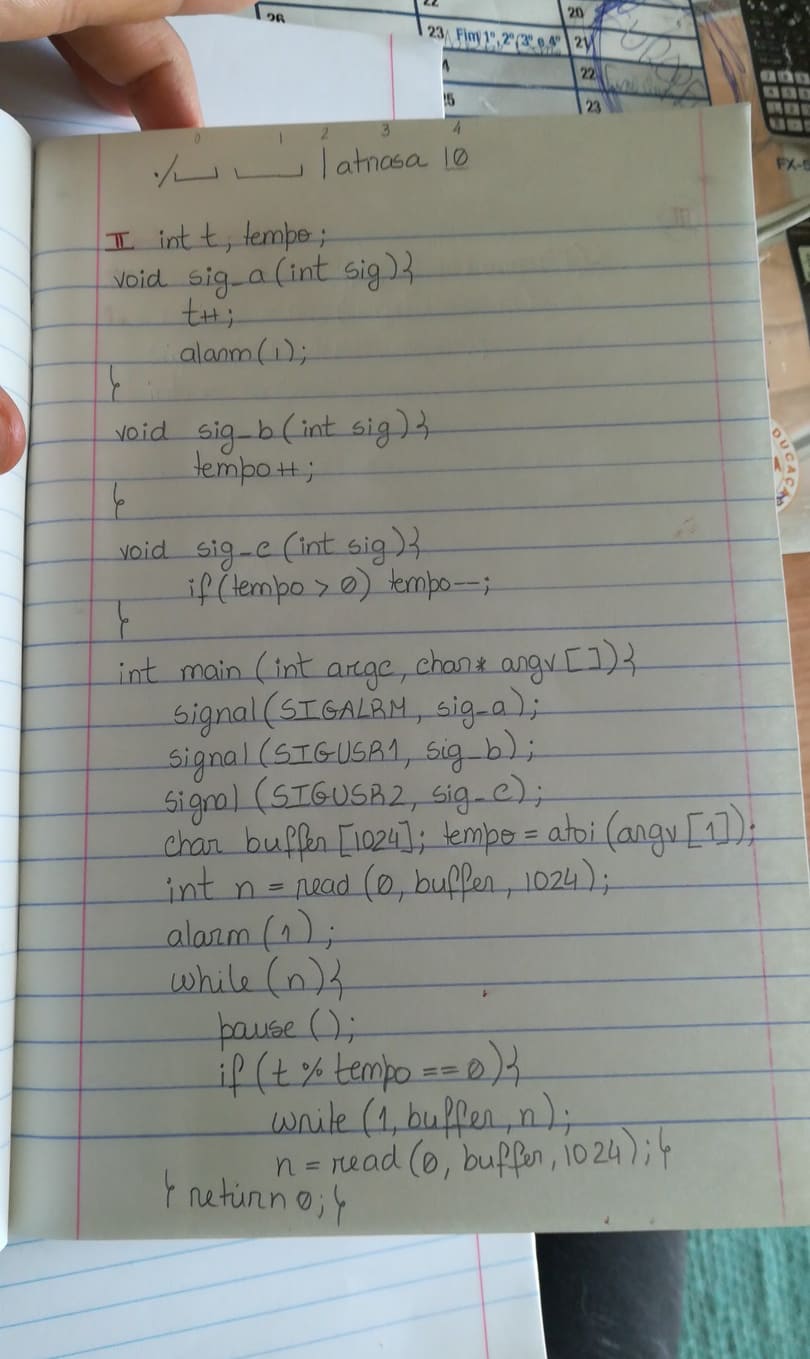 26
22
23 Fim 1º, 2º, 3º e 4º
20
21
22
23
FX-
0 1 2 3 4
./ | atrasa 10
II int t, tempo;
void sig_a(int sig){
t++;
alarm(1);
}
void sig_b(int sig){
tempo++;
}
void sig_c(int sig){
if(tempo > 0) tempo--;
}
int main (int argc, char* argv[]){
signal(SIGALRM, sig_a);
signal(SIGUSR1, sig_b);
signal(SIGUSR2, sig_c);
char buffer[1024]; tempo = atoi(argv[1]);
int n = read(0, buffer, 1024);
alarm(1);
while(n){
pause();
if(t % tempo == 0){
write(1, buffer, n);
n = read(0, buffer, 1024);}
} return 0;}